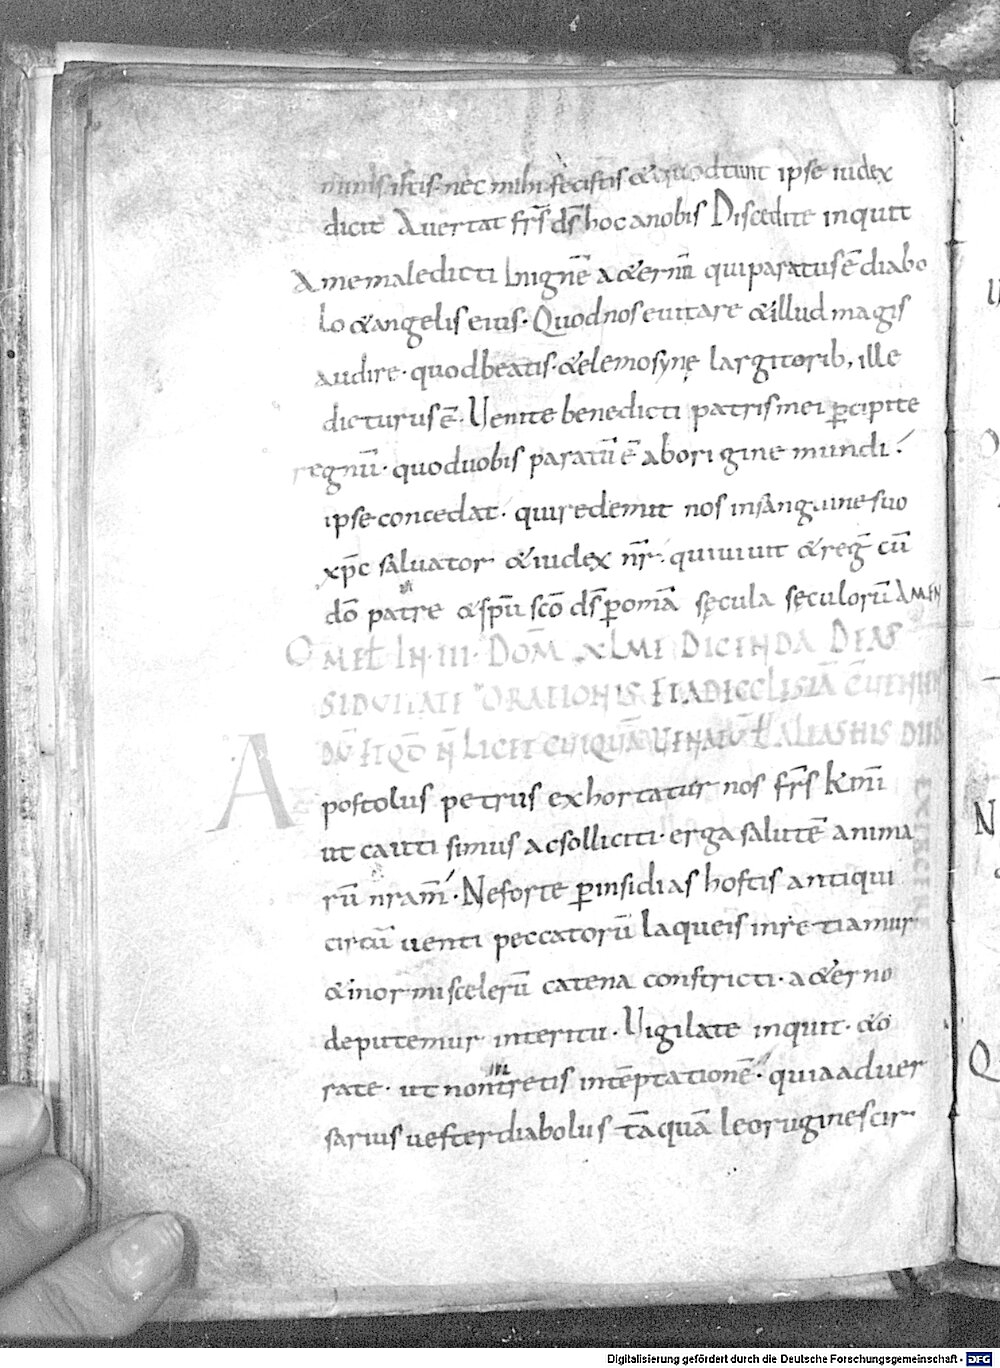 nimis istis nec mihi fecistis & quod tunc ipse iudex
dicit Auertat frs̄ ds̄ hoc anobis Discedite inquit
Amemaledicti Inignē a&ernū quiparatusē diabo
lo &angelis eius· Quodnoseuitare &illud magis
audire· quodbeatis· &elemosynę largitorib; ille
dicturus ē· Uenite benedicti patris mei p̄cipite
regnū· quoduobis paratū ē aborigine mundi·
ipse concedat· quiredemit nos insanguinesuo
xp̄c saluator &iudex nr̄· quiuiuit &reḡ cū
dō patre &spū scō ds̄ p omā sęcula sęculorū AMEN
OMEL IN III· DOM̄ XLME DICENDA DE AS
SIDUITATE ORATIONIS ET AD ECCLESIĀ
A postolus petrus exhortatur nos frs̄ kmī
ut cauti simus acsolliciti· erga salutē anima
rū nrarū· Neforte p̄insidias hostis antiqui
circū uenti peccatorū laqueis inretiamur
&inormi scelerū catena constricti· a&erno
deputemur interitu· Uigilate inquit· &o
rate· ut non intretis intēptationē· quiaaduer
sarius uester diabolus tāquā leorugiens cir
Digitalisierung gefördert durch die Deutsche Forschungsgemeinschaft - DFG